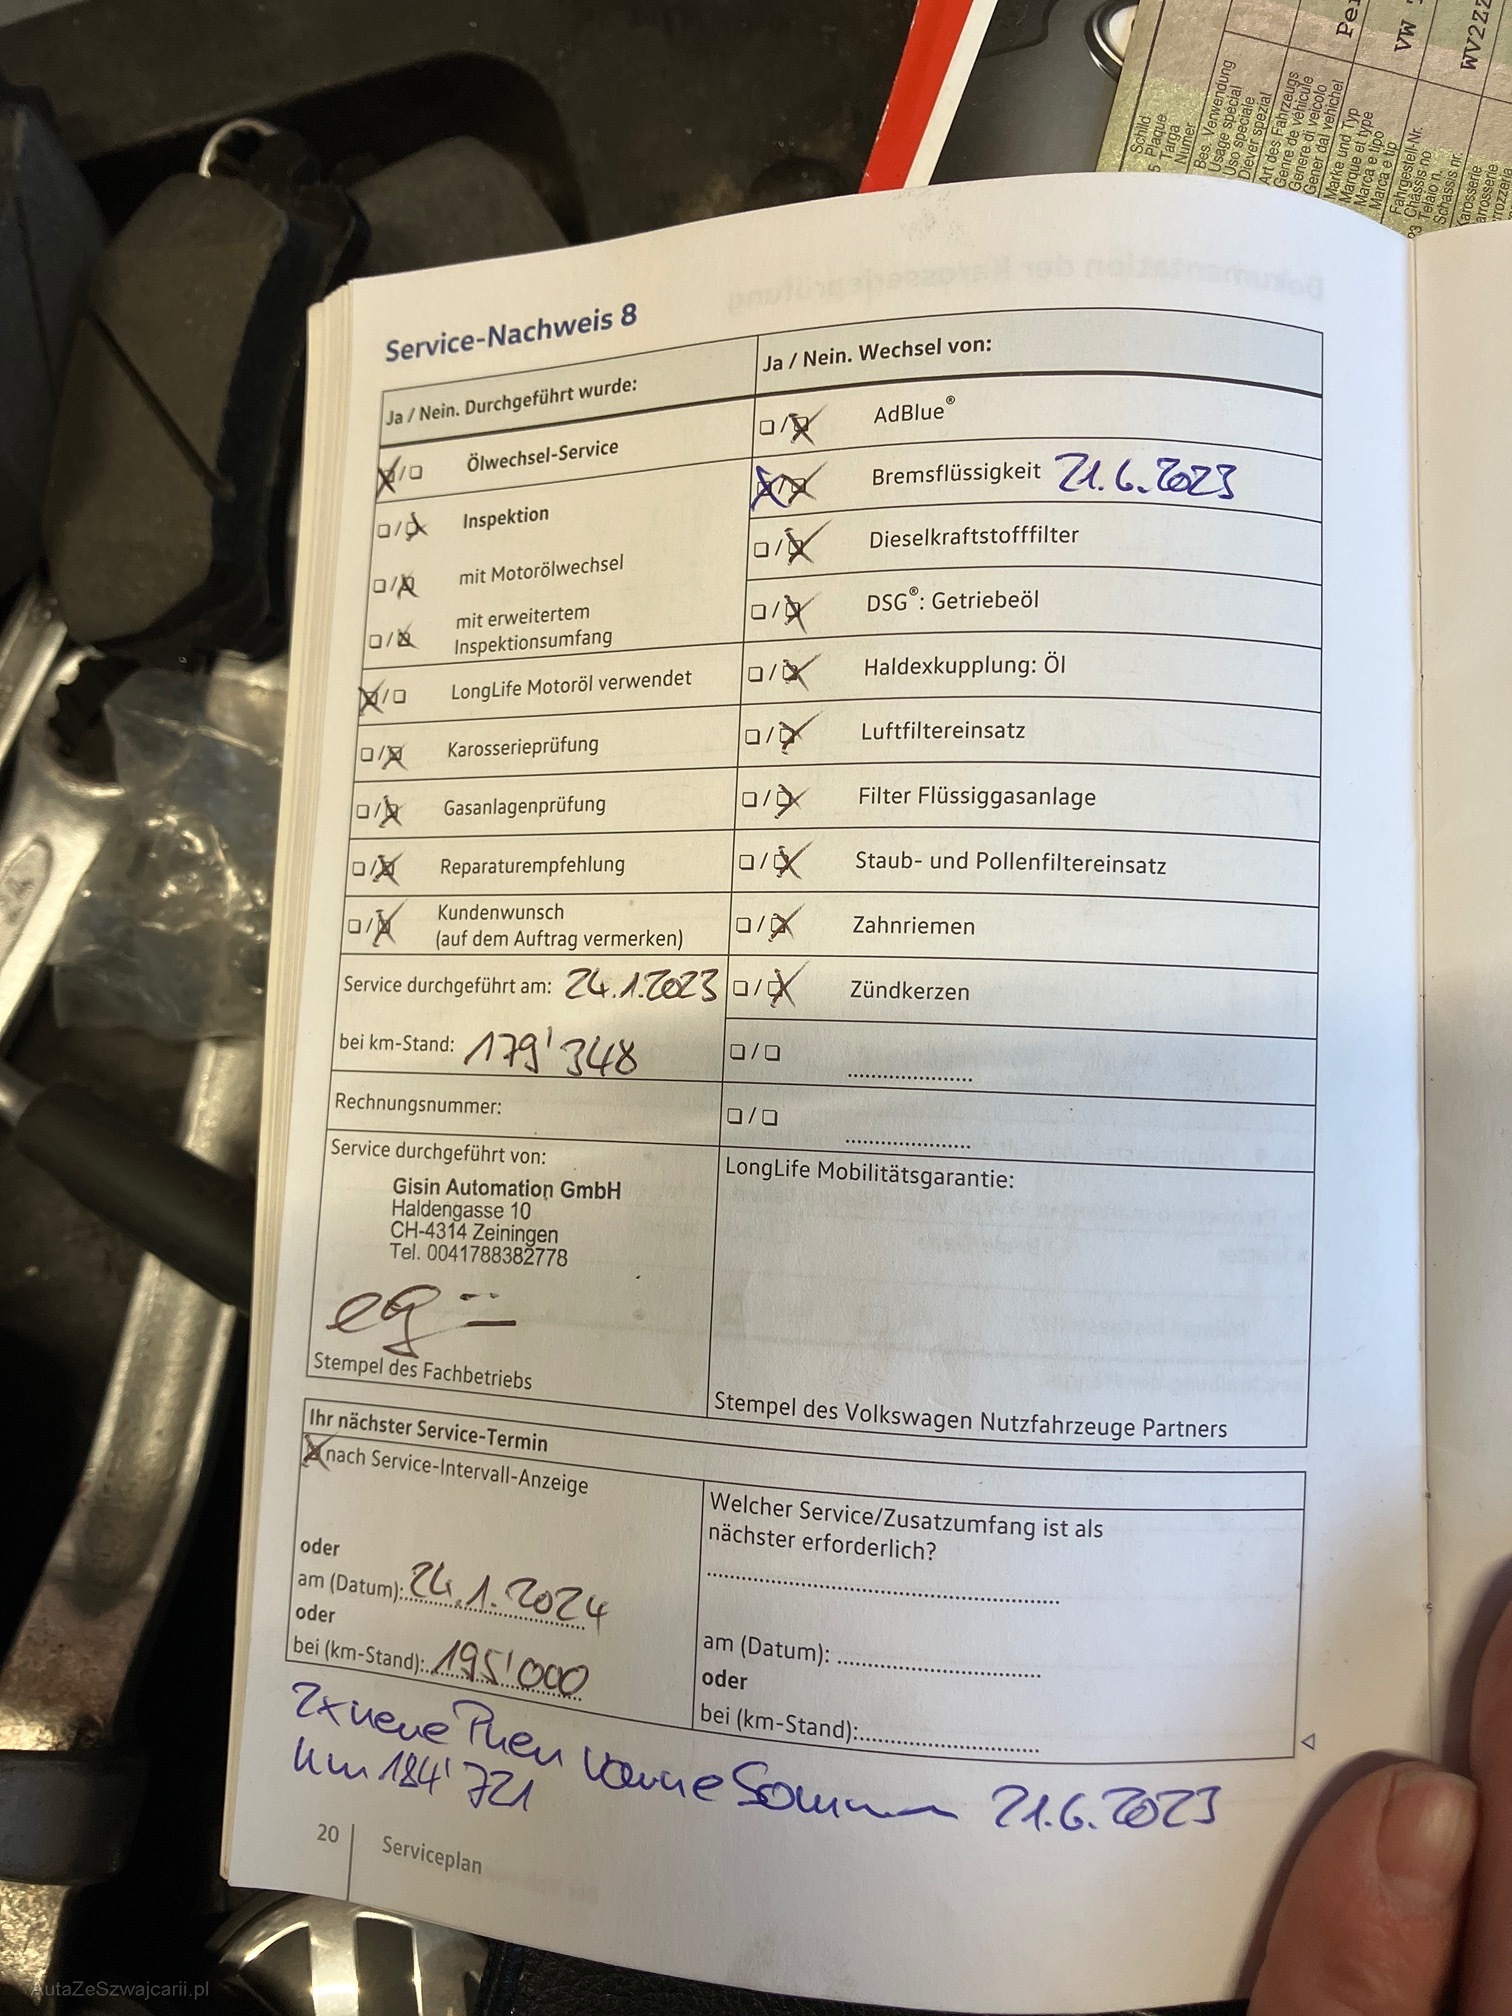 Service-Nachweis 8
Ja / Nein. Durchgeführt wurde:
Ölwechsel-Service
Inspektion
mit Motorölwechsel
mit erweitertem
Inspektionsumfang
LongLife Motoröl verwendet
Karosserieprüfung
Gasanlagenprüfung
Reparaturempfehlung
Kundenwunsch
(auf dem Auftrag vermerken)
Service durchgeführt am: 24.1.2023
bei km-Stand: 179'348
Rechnungsnummer:
Service durchgeführt von:
Gisin Automation GmbH
Haldengasse 10
CH-4314 Zeiningen
Tel. 0041788382778
Stempel des Fachbetriebs
Ja / Nein. Wechsel von:
AdBlue®
Bremsflüssigkeit 21.6.2023
Dieselkraftstofffilter
DSG®: Getriebeöl
Haldexkupplung: Öl
Luftfiltereinsatz
Filter Flüssiggasanlage
Staub- und Pollenfiltereinsatz
Zahnriemen
Zündkerzen
LongLife Mobilitätsgarantie:
Stempel des Volkswagen Nutzfahrzeuge Partners
Ihr nächster Service-Termin
nach Service-Intervall-Anzeige
oder
am (Datum): 24.1.2024
oder
bei (km-Stand): 195'000
Welcher Service/Zusatzumfang ist als
nächster erforderlich?
am (Datum):
oder
bei (km-Stand):
2x neue Pneu vorne Sommer 21.6.2023
km 184'721
20
Serviceplan
Schild
Plaque
Targa
Numer
Bes. Verwendung
Usage spécial
Uso speciale
Diever spezial
Art des Fahrzeugs
Genre de véhicule
Genere di veicolo
Gener dal vehichel
Marke und Typ
Marque et type
Marca e tipo
Marca e tip
VW
Fahrgestell-Nr.
Châssis no
Telaio n.
Schassis nr.
WV2ZZ
Karosserie
AutaZeSzwajcarii.pl